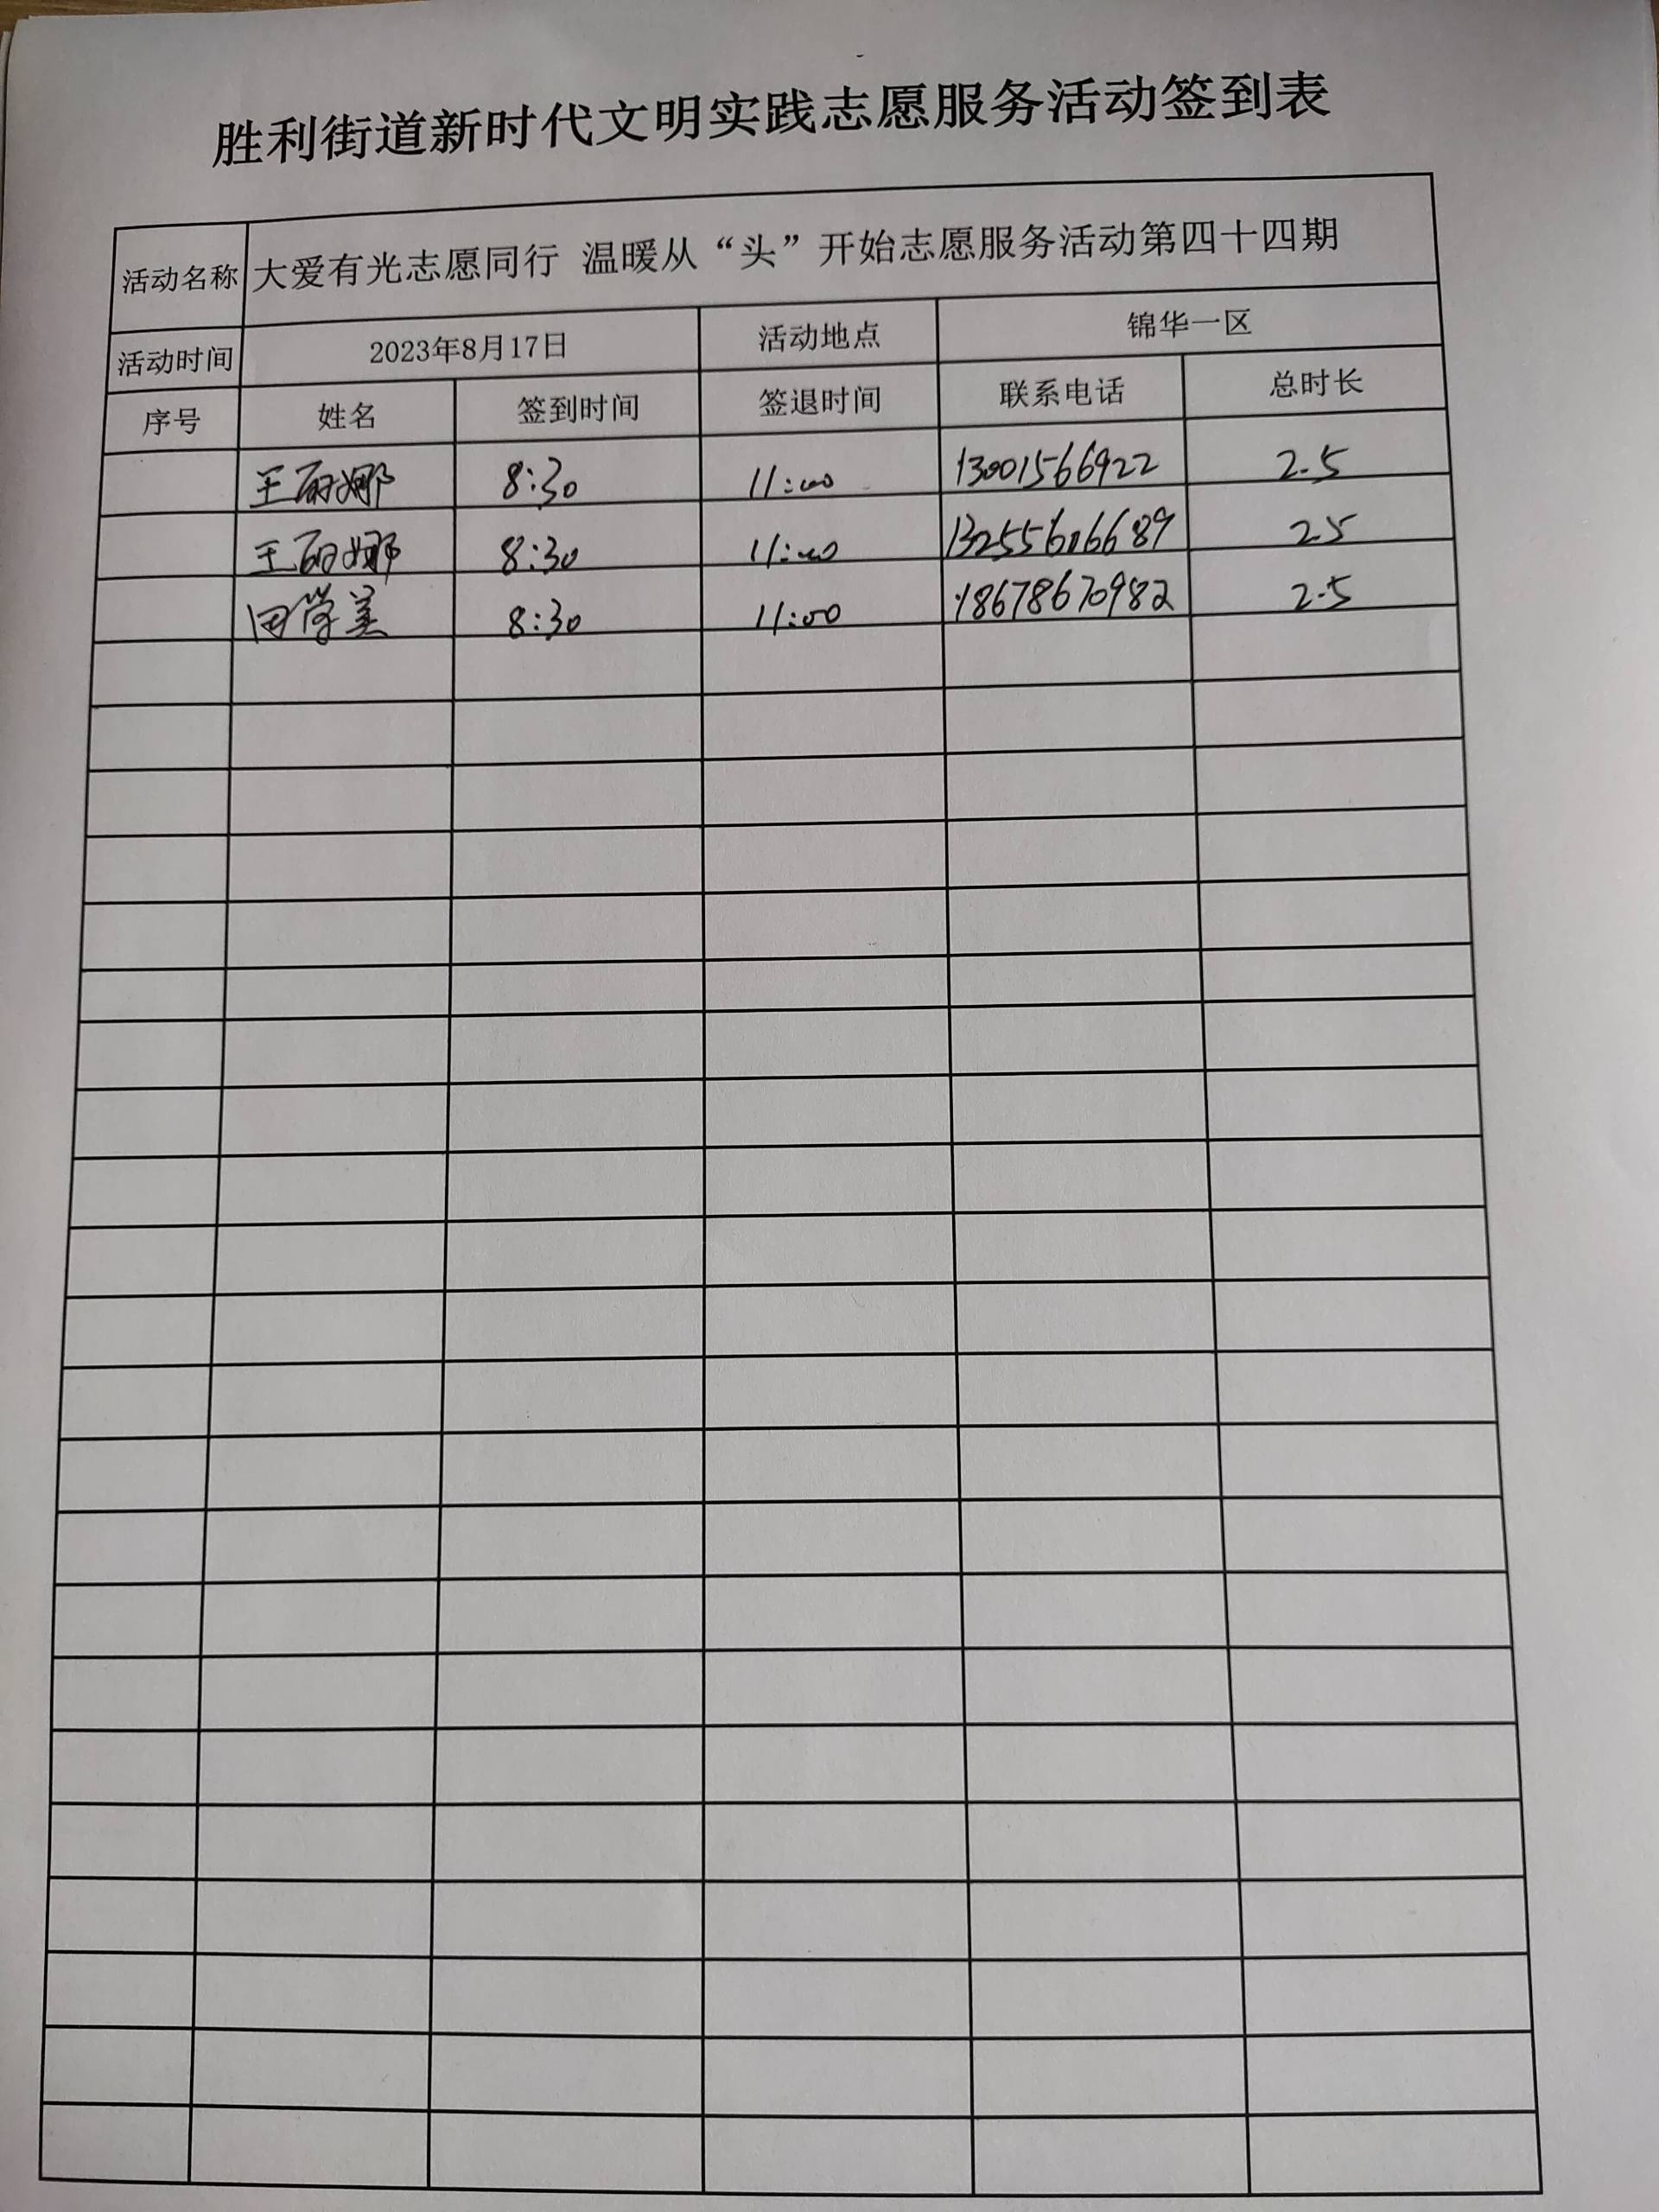 胜利街道新时代文明实践志愿服务活动签到表
活动名称 大爱有光志愿同行 温暖从“头”开始志愿服务活动第四十四期
活动时间 2023年8月17日 活动地点 锦华一区
序号 姓名 签到时间 签退时间 联系电话 总时长
王丽娜 8:30 11:00 13001566922 2.5
王丽娜 8:30 11:00 2.5
田学美 8:30 11:00 18678670982 2.5